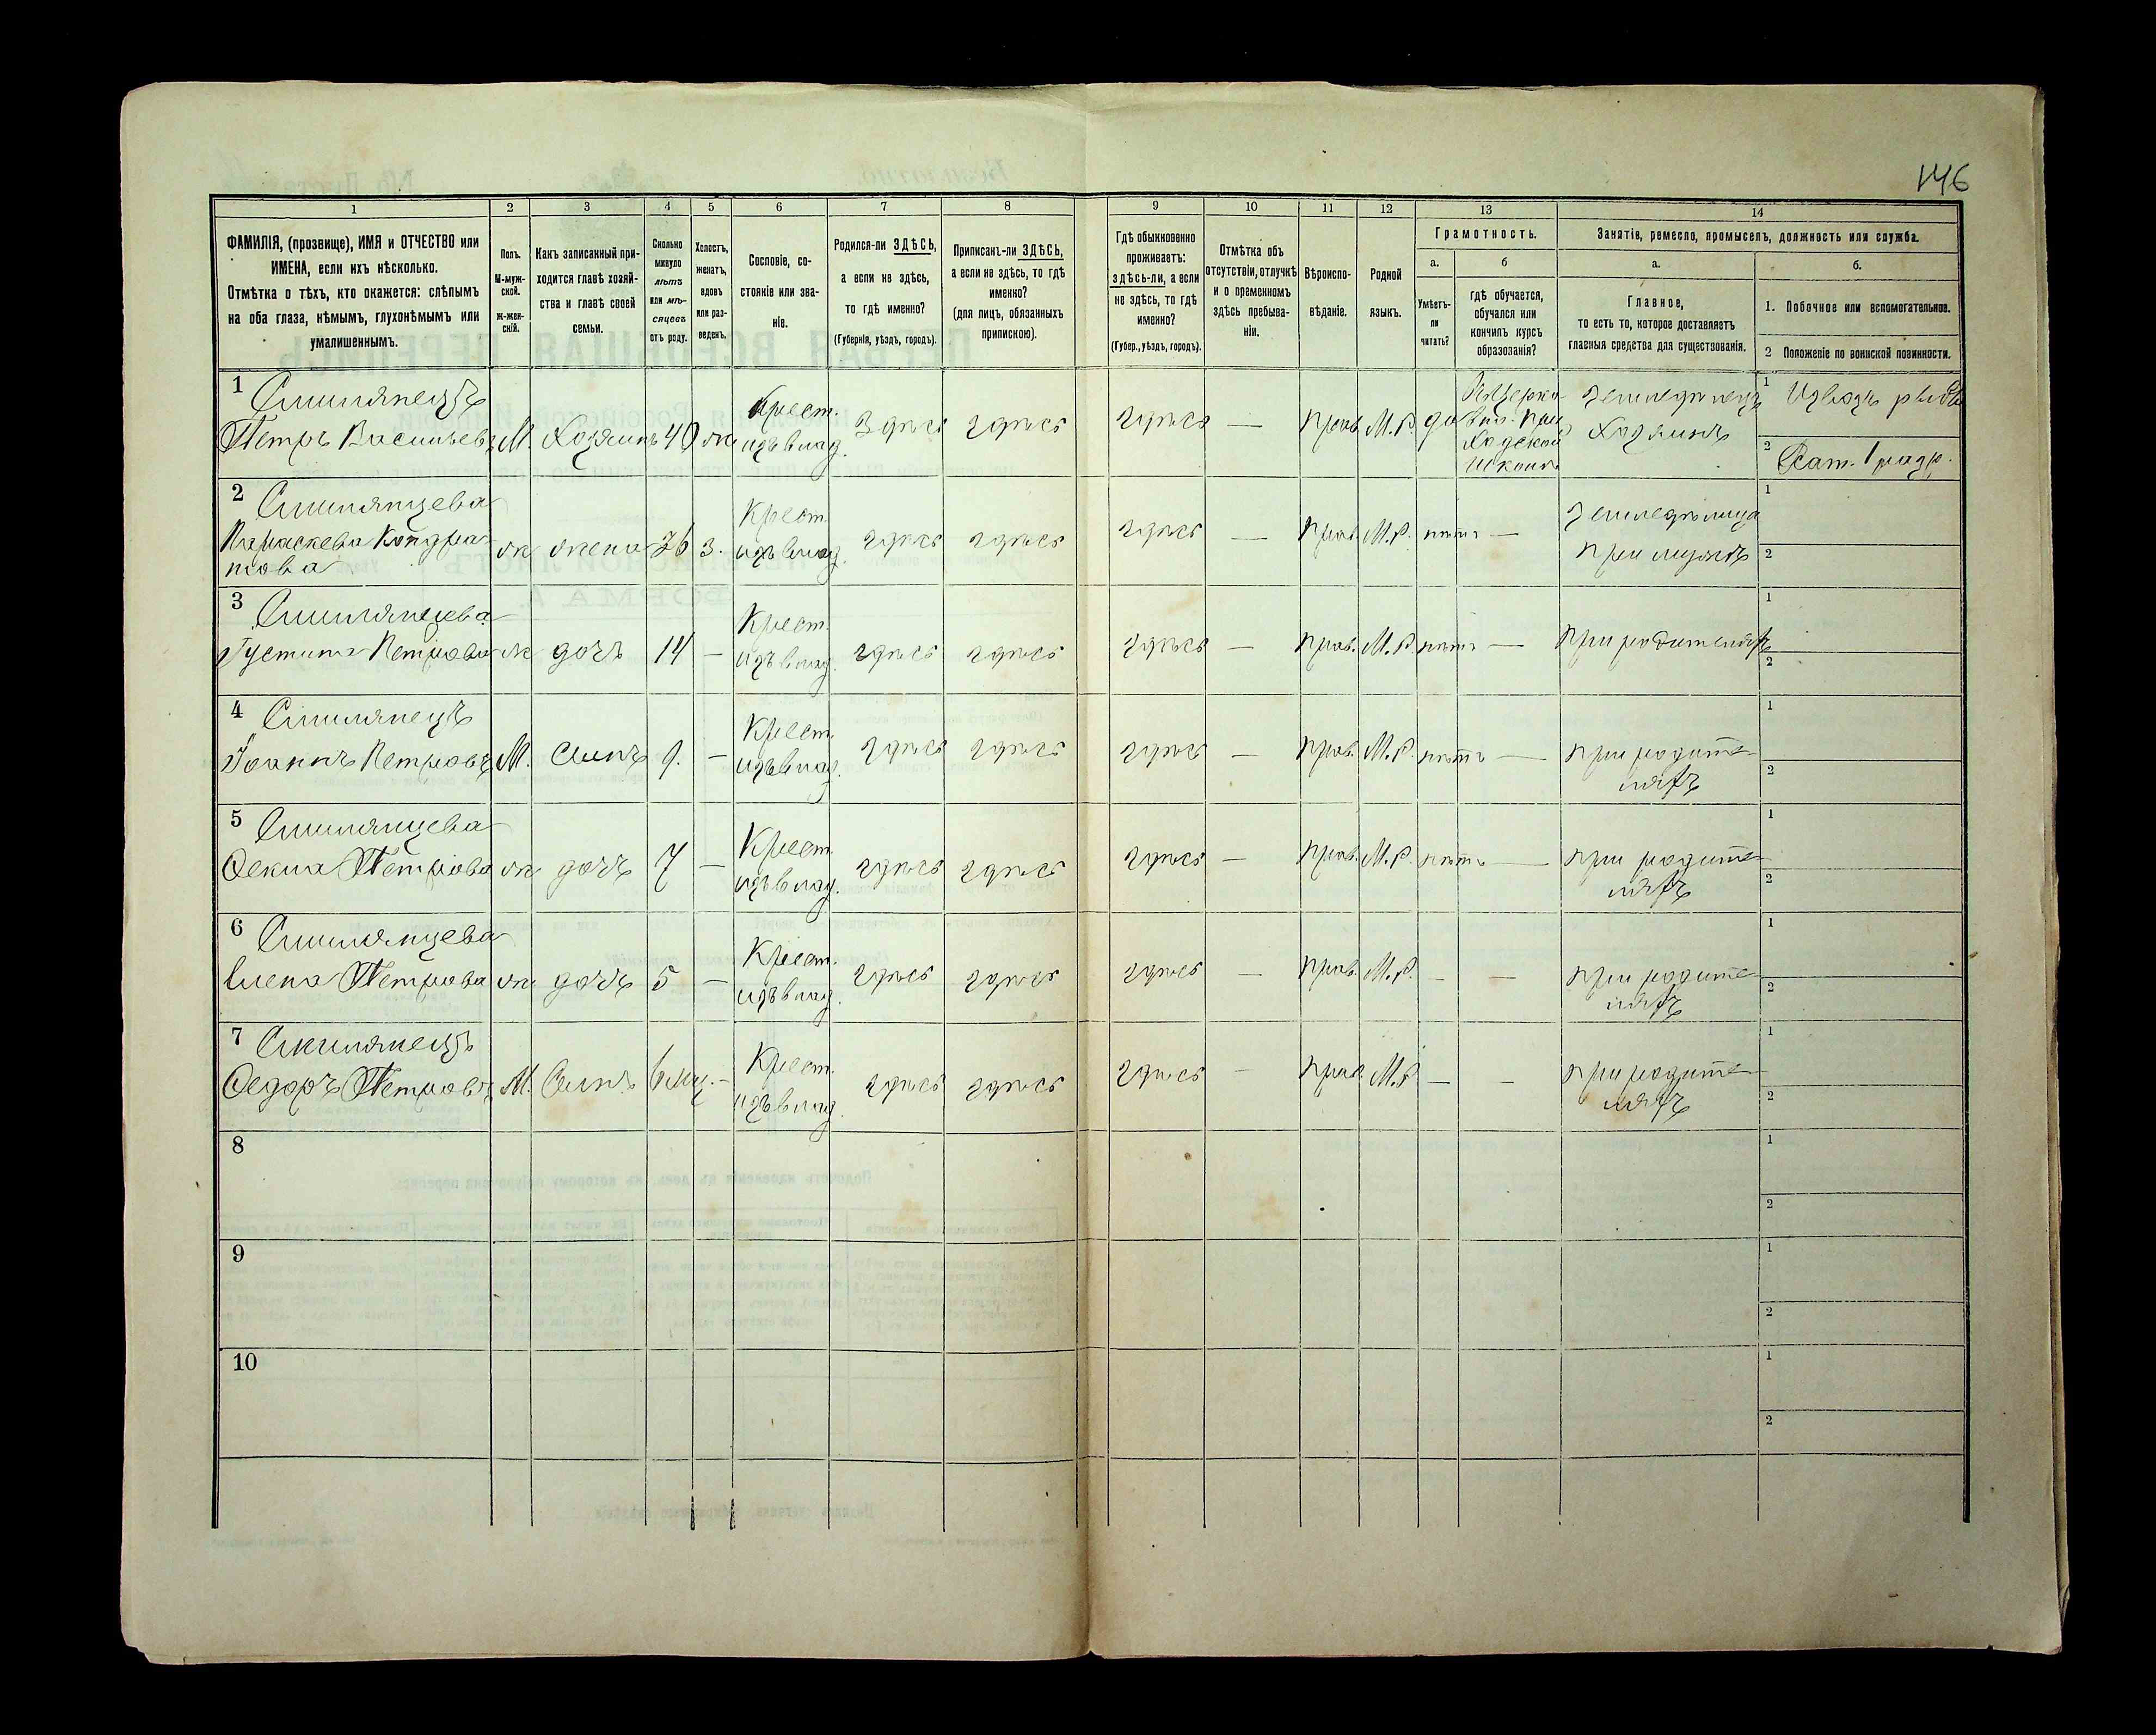 146
1 2 3 4 5 6 7 8 9 10 11 12 13 14
ФАМИЛІЯ, (прозвище), ИМЯ и ОТЧЕСТВО или
ИМЕНА, если ихъ нѣсколько.
Отмѣтка о тѣхъ, кто окажется: слѣпымъ
на оба глаза, нѣмымъ, глухонѣмымъ или
умалишеннымъ.
Полъ.
М-муж-
ской.
Ж-жен-
скій.
Какъ записанный при-
ходится главѣ хозяй-
ства и главѣ своей
семьи.
Сколько
минуло
лѣтъ
или мѣ-
сяцевъ
отъ роду.
Холостъ,
женатъ,
вдовъ
или раз-
веденъ.
Сословіе, со-
стояніе или зва-
ніе.
Родился-ли ЗДѢСЬ,
а если не здѣсь,
то гдѣ именно?
(Губернія, уѣздъ, городъ).
Приписанъ-ли ЗДѢСЬ,
а если не здѣсь, то гдѣ
именно?
(для лицъ, обязанныхъ
припискою).
Гдѣ обыкновенно
проживаетъ:
здѣсь-ли, а если
не здѣсь, то гдѣ
именно?
(Губер., уѣздъ, городъ).
Отмѣтка объ
отсутствіи, отлучкѣ
и о временномъ
здѣсь пребыва-
ніи.
Вѣроиспо-
вѣданіе.
Родной
языкъ.
Грамотность.
а.
Умѣетъ-
ли
читать?
б
гдѣ обучается,
обучался или
кончилъ курсъ
образованія?
Занятіе, ремесло, промыселъ, должность или служба.
а.
Главное,
то есть то, которое доставляетъ
главныя средства для существованія.
б.
1. Побочное или вспомогательное.
2 Положеніе по воинской повинности.
1 Смилянецъ
Петръ Васильевъ М. Хозяинъ 40 ж.
Крест.
изъ влад.
Здѣсь здѣсь здѣсь — прав. М.Р. да
При-
ходской
школѣ
Земледѣлецъ
Хозяинъ
1 Извозъ
2 Рат. 1 разр.
2 Смилянцева
Параскева Кондра-
това
ж жена 36 з.
Крест.
изъ влад.
здѣсь здѣсь здѣсь — прав. М.Р. нѣтъ —
Земледѣлица
при мужѣ
1
2
3 Смилянцева
Густина Петрова ж дочь 14 —
Крест.
изъ влад.
здѣсь здѣсь здѣсь — прав. М.Р. нѣтъ — при родителяхъ
1
2
4 Смилянецъ
Іоаннъ Петровъ М. сынъ 9. —
Крест.
изъ влад.
здѣсь здѣсь здѣсь — прав. М.Р. нѣтъ — при родите-
ляхъ
1
2
5 Смилянцева
Фекла Петрова ж дочь 7 —
Крест.
изъ влад.
здѣсь здѣсь здѣсь — прав. М.Р. нѣтъ — при родите-
ляхъ
1
2
6 Смилянцева
Елена Петрова ж дочь 5 —
Крест.
изъ влад.
здѣсь здѣсь здѣсь — прав. М.Р. — — при родите-
ляхъ
1
2
7 Смилянецъ
Федоръ Петровъ М. Сынъ 6 мц. —
Крест.
изъ влад.
здѣсь здѣсь здѣсь — прав. М.Р. — — при родите-
ляхъ
1
2
8
1
2
9
1
2
10
1
2